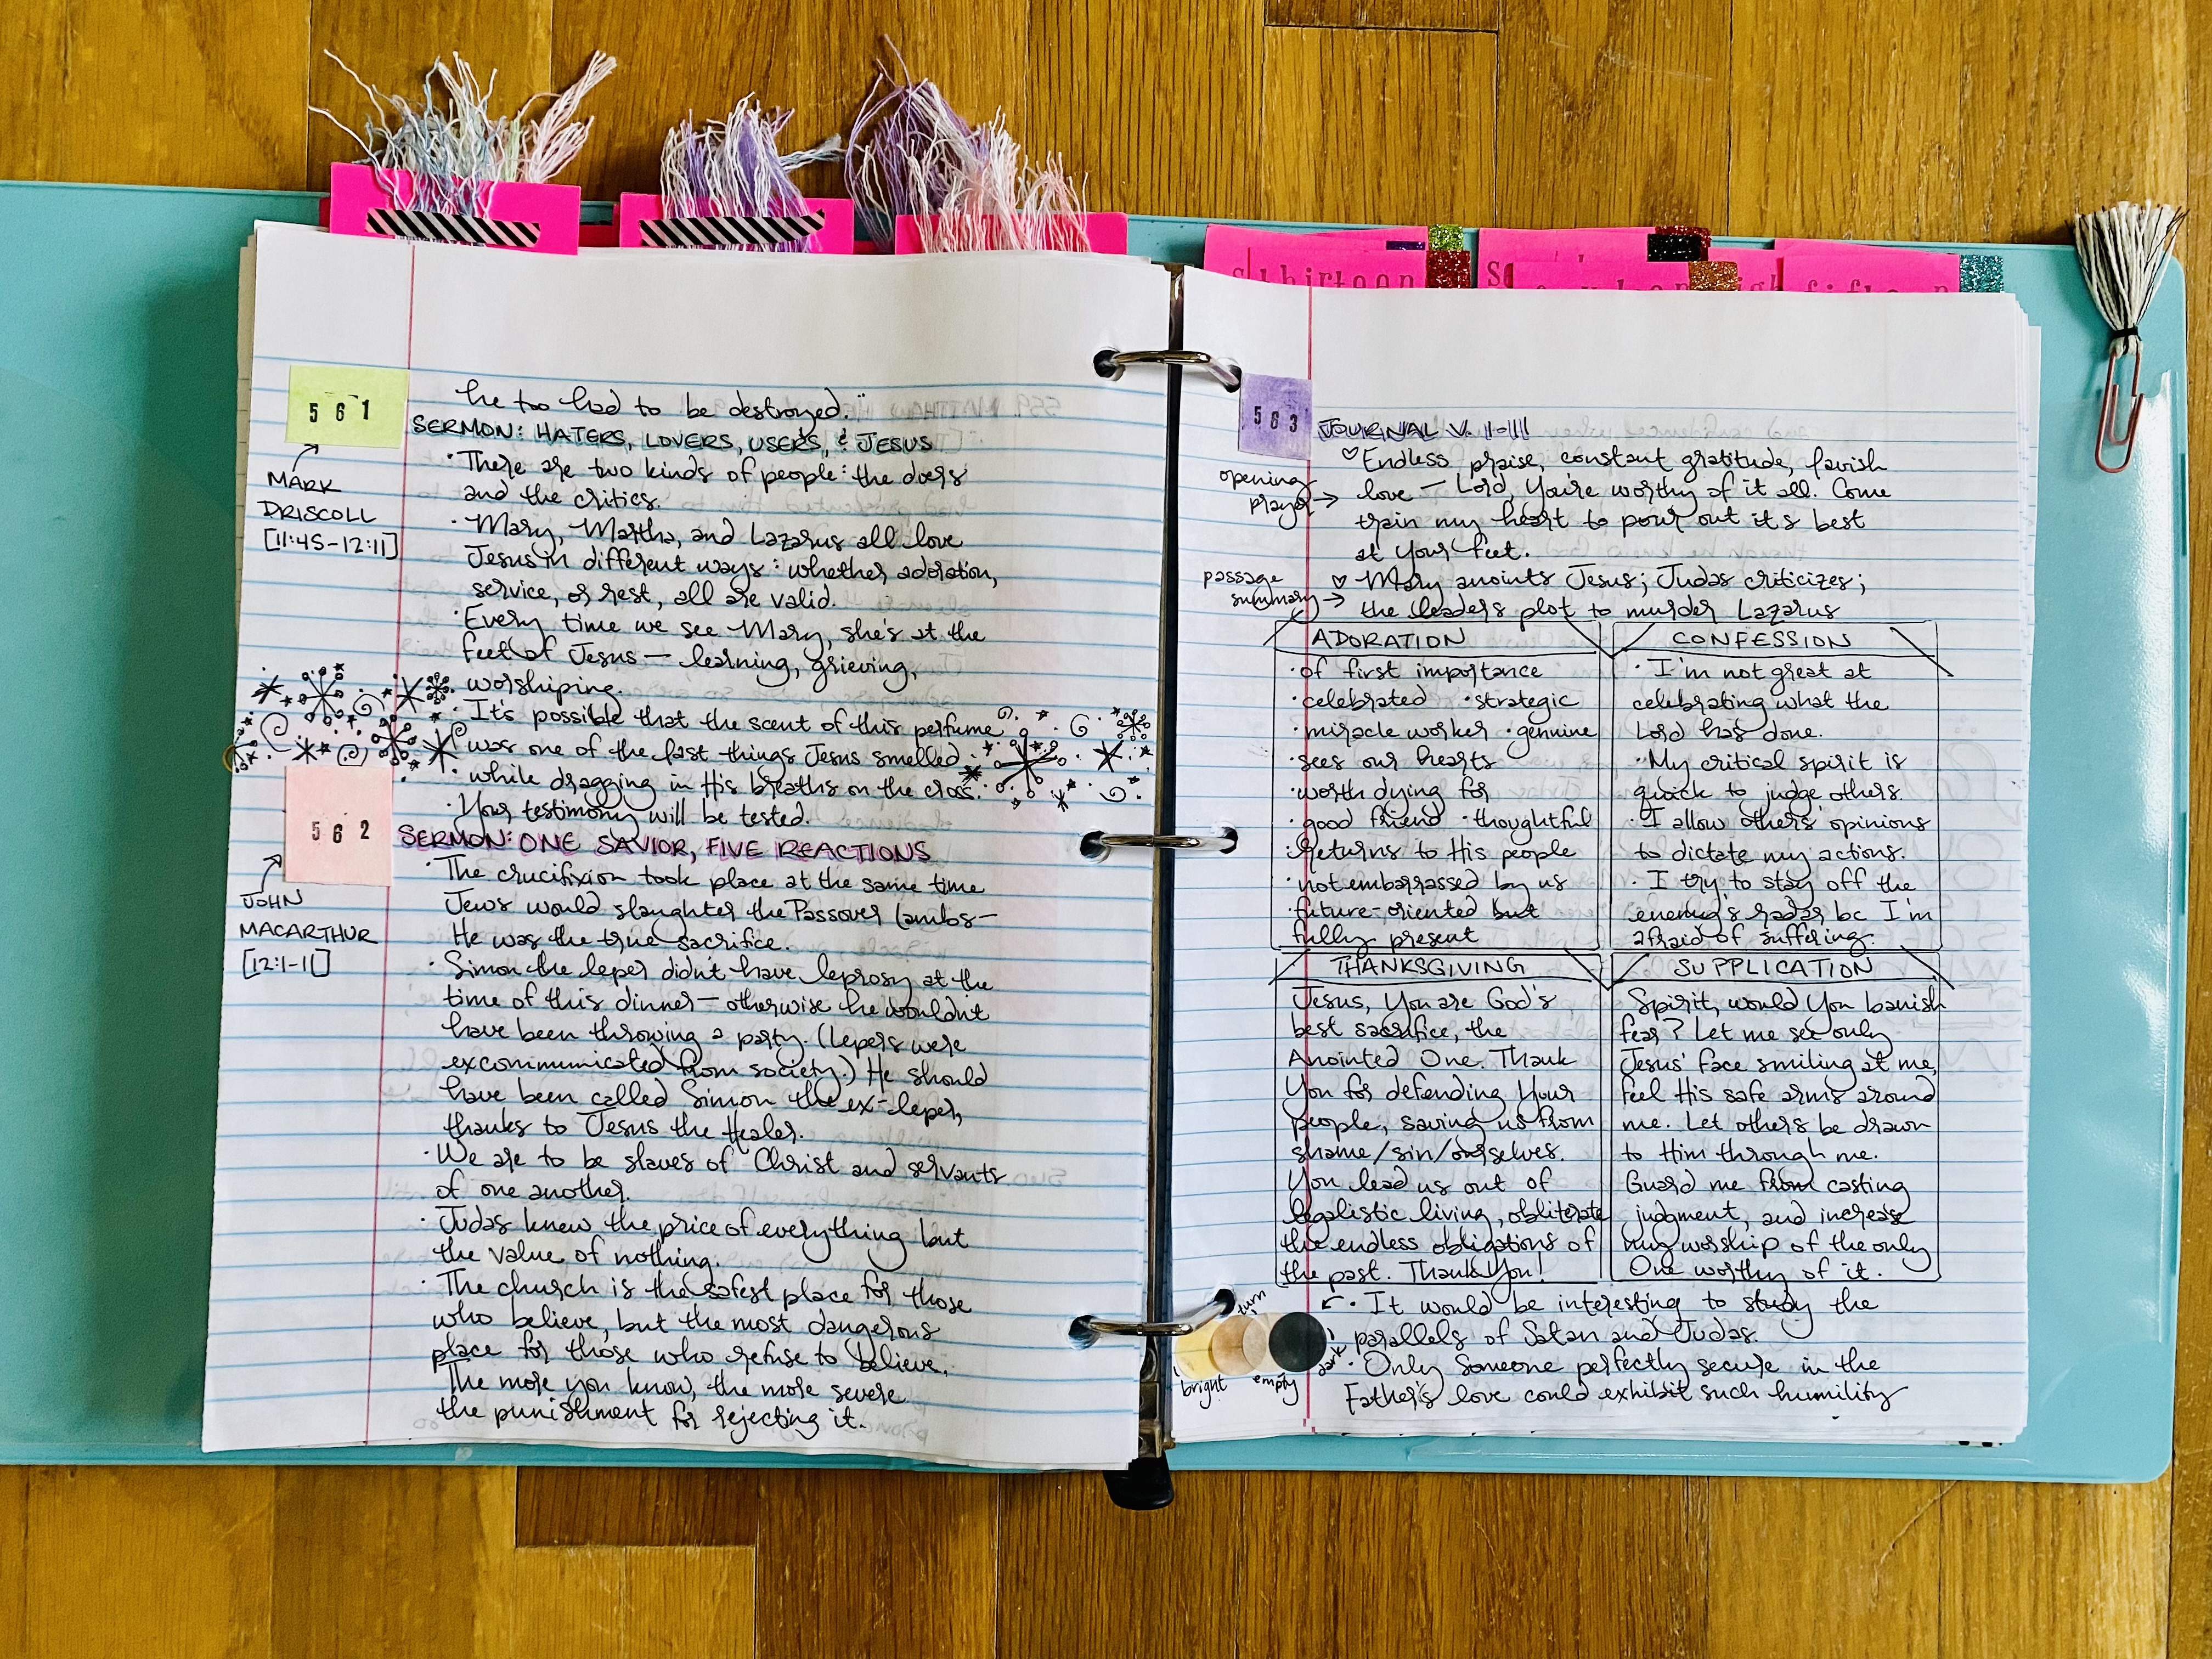 thirteen
fifteen
561
he too had to be destroyed."
SERMON: HATERS, LOVERS, USERS, & JESUS
MARK
DRISCOLL
[11:45-12:11]
· There are two kinds of people: the doers
and the critics.
· Mary, Martha, and Lazarus all love
Jesus in different ways: whether adoration,
service, or rest, all are valid.
· Every time we see Mary, she's at the
feet of Jesus — learning, grieving,
worshiping.
· It's possible that the scent of this perfume
was one of the last things Jesus smelled
while dragging in His breaths on the cross.
· Your testimony will be tested.
562
SERMON: ONE SAVIOR, FIVE REACTIONS
JOHN
MACARTHUR
[12:1-11]
· The crucifixion took place at the same time
Jews would slaughter the Passover lambs—
He was the true sacrifice.
· Simon the leper didn't have leprosy at the
time of this dinner— otherwise he wouldn't
have been throwing a party. (Lepers were
excommunicated from society.) He should
have been called Simon the ex-leper,
thanks to Jesus the Healer.
· We are to be slaves of Christ and servants
of one another.
· Judas knew the price of everything but
the value of nothing.
· The church is the safest place for those
who believe, but the most dangerous
place for those who refuse to believe.
The more you know, the more severe
the punishment for rejecting it.
563
JOURNAL V. 1-11
opening
prayer →
♡ Endless praise, constant gratitude, lavish
love — Lord, You're worthy of it all. Come
train my heart to pour out it's best
at Your feet.
passage
summary →
♡ Mary anoints Jesus; Judas criticizes;
the leaders plot to murder Lazarus
ADORATION
· of first importance
· celebrated · strategic
· miracle worker · genuine
· sees our hearts
· worth dying for
· good friend · thoughtful
· returns to His people
· not embarrassed by us
· future-oriented but
fully present
CONFESSION
· I'm not great at
celebrating what the
Lord has done.
· My critical spirit is
quick to judge others.
· I allow others' opinions
to dictate my actions.
· I try to stay off the
enemy's radar bc I'm
afraid of suffering.
THANKSGIVING
Jesus, You are God's
best sacrifice, the
Anointed One. Thank
You for defending Your
people, saving us from
shame/sin/ourselves.
You lead us out of
legalistic living, obliterate
the endless obligations of
the past. Thank You!
SUPPLICATION
Spirit, would You banish
fear? Let me see only
Jesus' face smiling at me,
feel His safe arms around
me. Let others be drawn
to Him through me.
Guard me from casting
judgment, and increase
my worship of the only
One worthy of it.
· It would be interesting to study the
parallels of Satan and Judas.
· Only Someone perfectly secure in the
Father's love could exhibit such humility
turn
dark
bright
empty